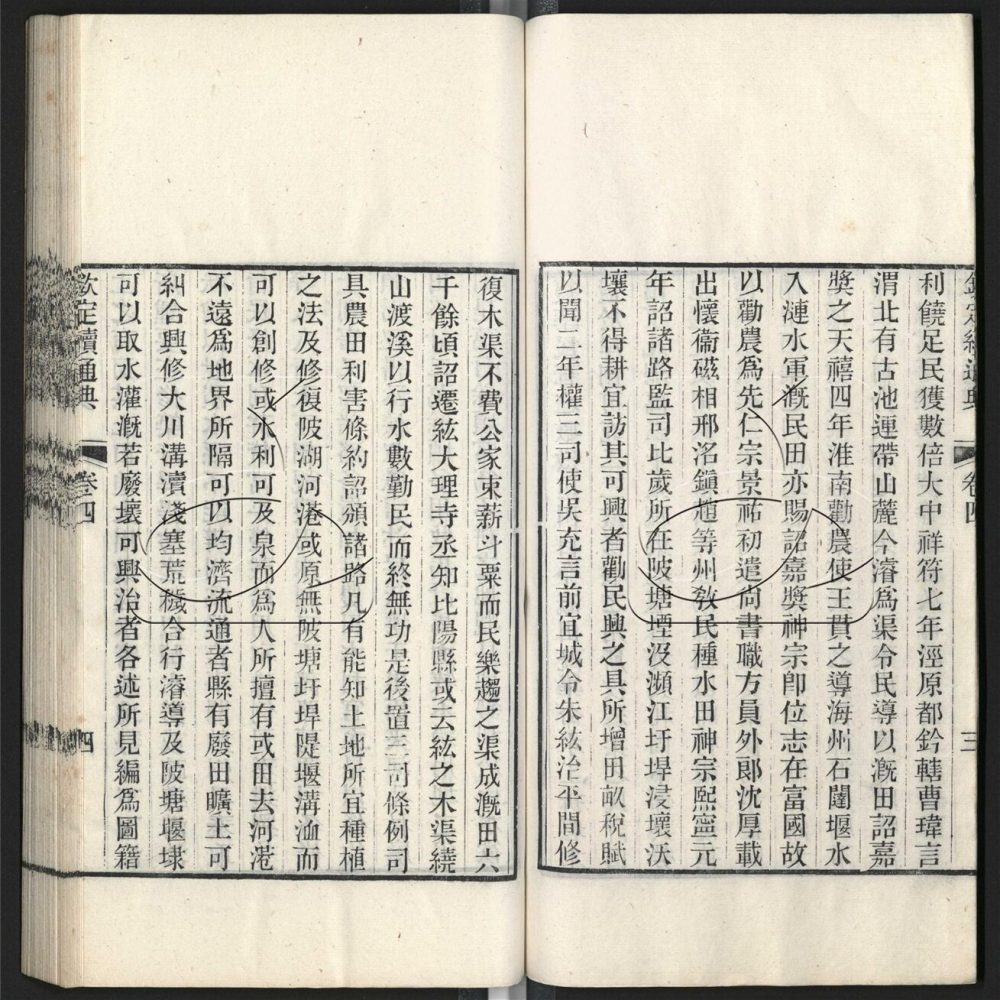 欽定續通典 卷四 三
利饒足民獲數倍大中祥符七年涇原都鈐轄曹瑋言
渭北有古池連帶山麓今濬為渠令民導以漑田詔嘉
獎之天禧四年淮南勸農使王貫之導海州石闥堰水
入漣水軍漑民田亦賜詔嘉獎神宗卽位志在富國故
以勸農爲先仁宗景祐初遣尚書職方員外郎沈厚載
出懷衞磁相邢洺鎮趙等州教民種水田神宗熙寧元
年詔諸路監司比歲所在陂塘堙沒瀕江圩垾浸壞沃
壤不得耕宜訪其可興者勸民興之具所增田畝稅賦
以聞二年權三司使吳充言前宜城令朱紘治平間修
復木渠不費公家束薪斗粟而民樂趨之渠成漑田六
千餘頃詔遷紘大理寺丞知比陽縣或云紘之木渠繞
山渡溪以行水數勤民而終無功是後置三司條例司
具農田利害條約詔頒諸路凡有能知土地所宜種植
之法及修復陂湖河港或原無陂塘圩垾隄堰溝洫而
可以創修或水利可及泉而爲人所擅有或田去河港
不遠爲地界所隔可以均濟流通者縣有廢田曠土可
糾合興修大川溝瀆淺塞荒穢合行濬導及陂塘堰埭
可以取水灌漑若廢壞可興治者各述所見編爲圖籍
欽定續通典 卷四 四